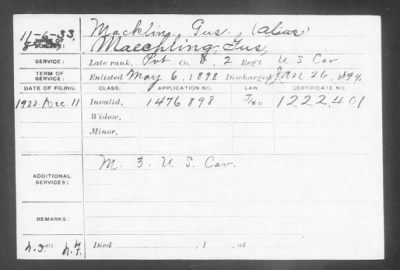 11-6-33. Mackling, Gus., (alias)
NAME OF SOLDIER: Maechling, Gus,
SERVICE: Late rank, Pvt Co. E, 2 Reg't U S Cav
TERM OF SERVICE: Enlisted May 6, 1898 Discharged Jan 26, 1899.
DATE OF FILING. CLASS. APPLICATION NO. LAW CERTIFICATE NO.
1922. Dec 11 Invalid, 1476898 1222401
Widow,
Minor,
ADDITIONAL SERVICES: M. 3. U S. Cav.
REMARKS:
Died , 1 , at